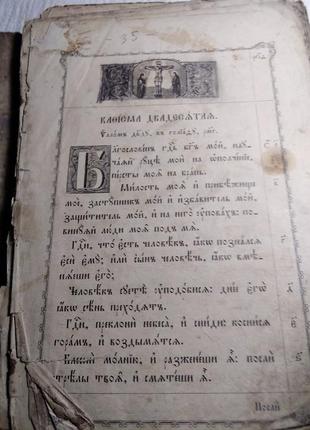 - 35 -
КАѲІСМА ДВАДЕСѦТАѦ.
Ѱало́мъ дв҃дꙋ, въ голїа́дꙋ, рмг҃.
Бл҃гослове́нъ гдⷭ҇ь бг҃ъ мо́й, наꙋ-
ча́ѧй рꙋ́цѣ моѝ на ѡ҆полче́нїе,
пє́рсты моѧ̑ на бра́нь.
Ми́лость моѧ̀ и҆ прибѣ́жище
моѐ, застꙋ́пникъ мо́й и҆ и҆зба́витель мо́й,
защи́титель мо́й, и҆ на него̀ ᲂу҆пова́хъ: по-
винꙋ́ѧй лю́ди моѧ̑ под̾ мѧ̀.
Гдⷭ҇и, что̀ є҆́сть человѣ́къ, ꙗ҆́кѡ позна́лсѧ
є҆сѝ є҆мꙋ̀; и҆лѝ сы́нъ человѣ́чь, ꙗ҆́кѡ вмѣ-
нѧ́еши є҆го̀;
Человѣ́къ сꙋетѣ̀ ᲂу҆подо́бисѧ: дні́е є҆гѡ̀
ꙗ҆́кѡ сѣ́нь прехо́дѧтъ.
Гдⷭ҇и, приклонѝ нб҃са̀, и҆ сни́ди: косни́сѧ
гора́мъ, и҆ воздымѧ́тсѧ.
Блеснѝ мо́лнїю, и҆ разжене́ши ѧ҆̀: послѝ
стрѣ́лы твоѧ̑, и҆ смѧте́ши ѧ҆̀.
Послѝ